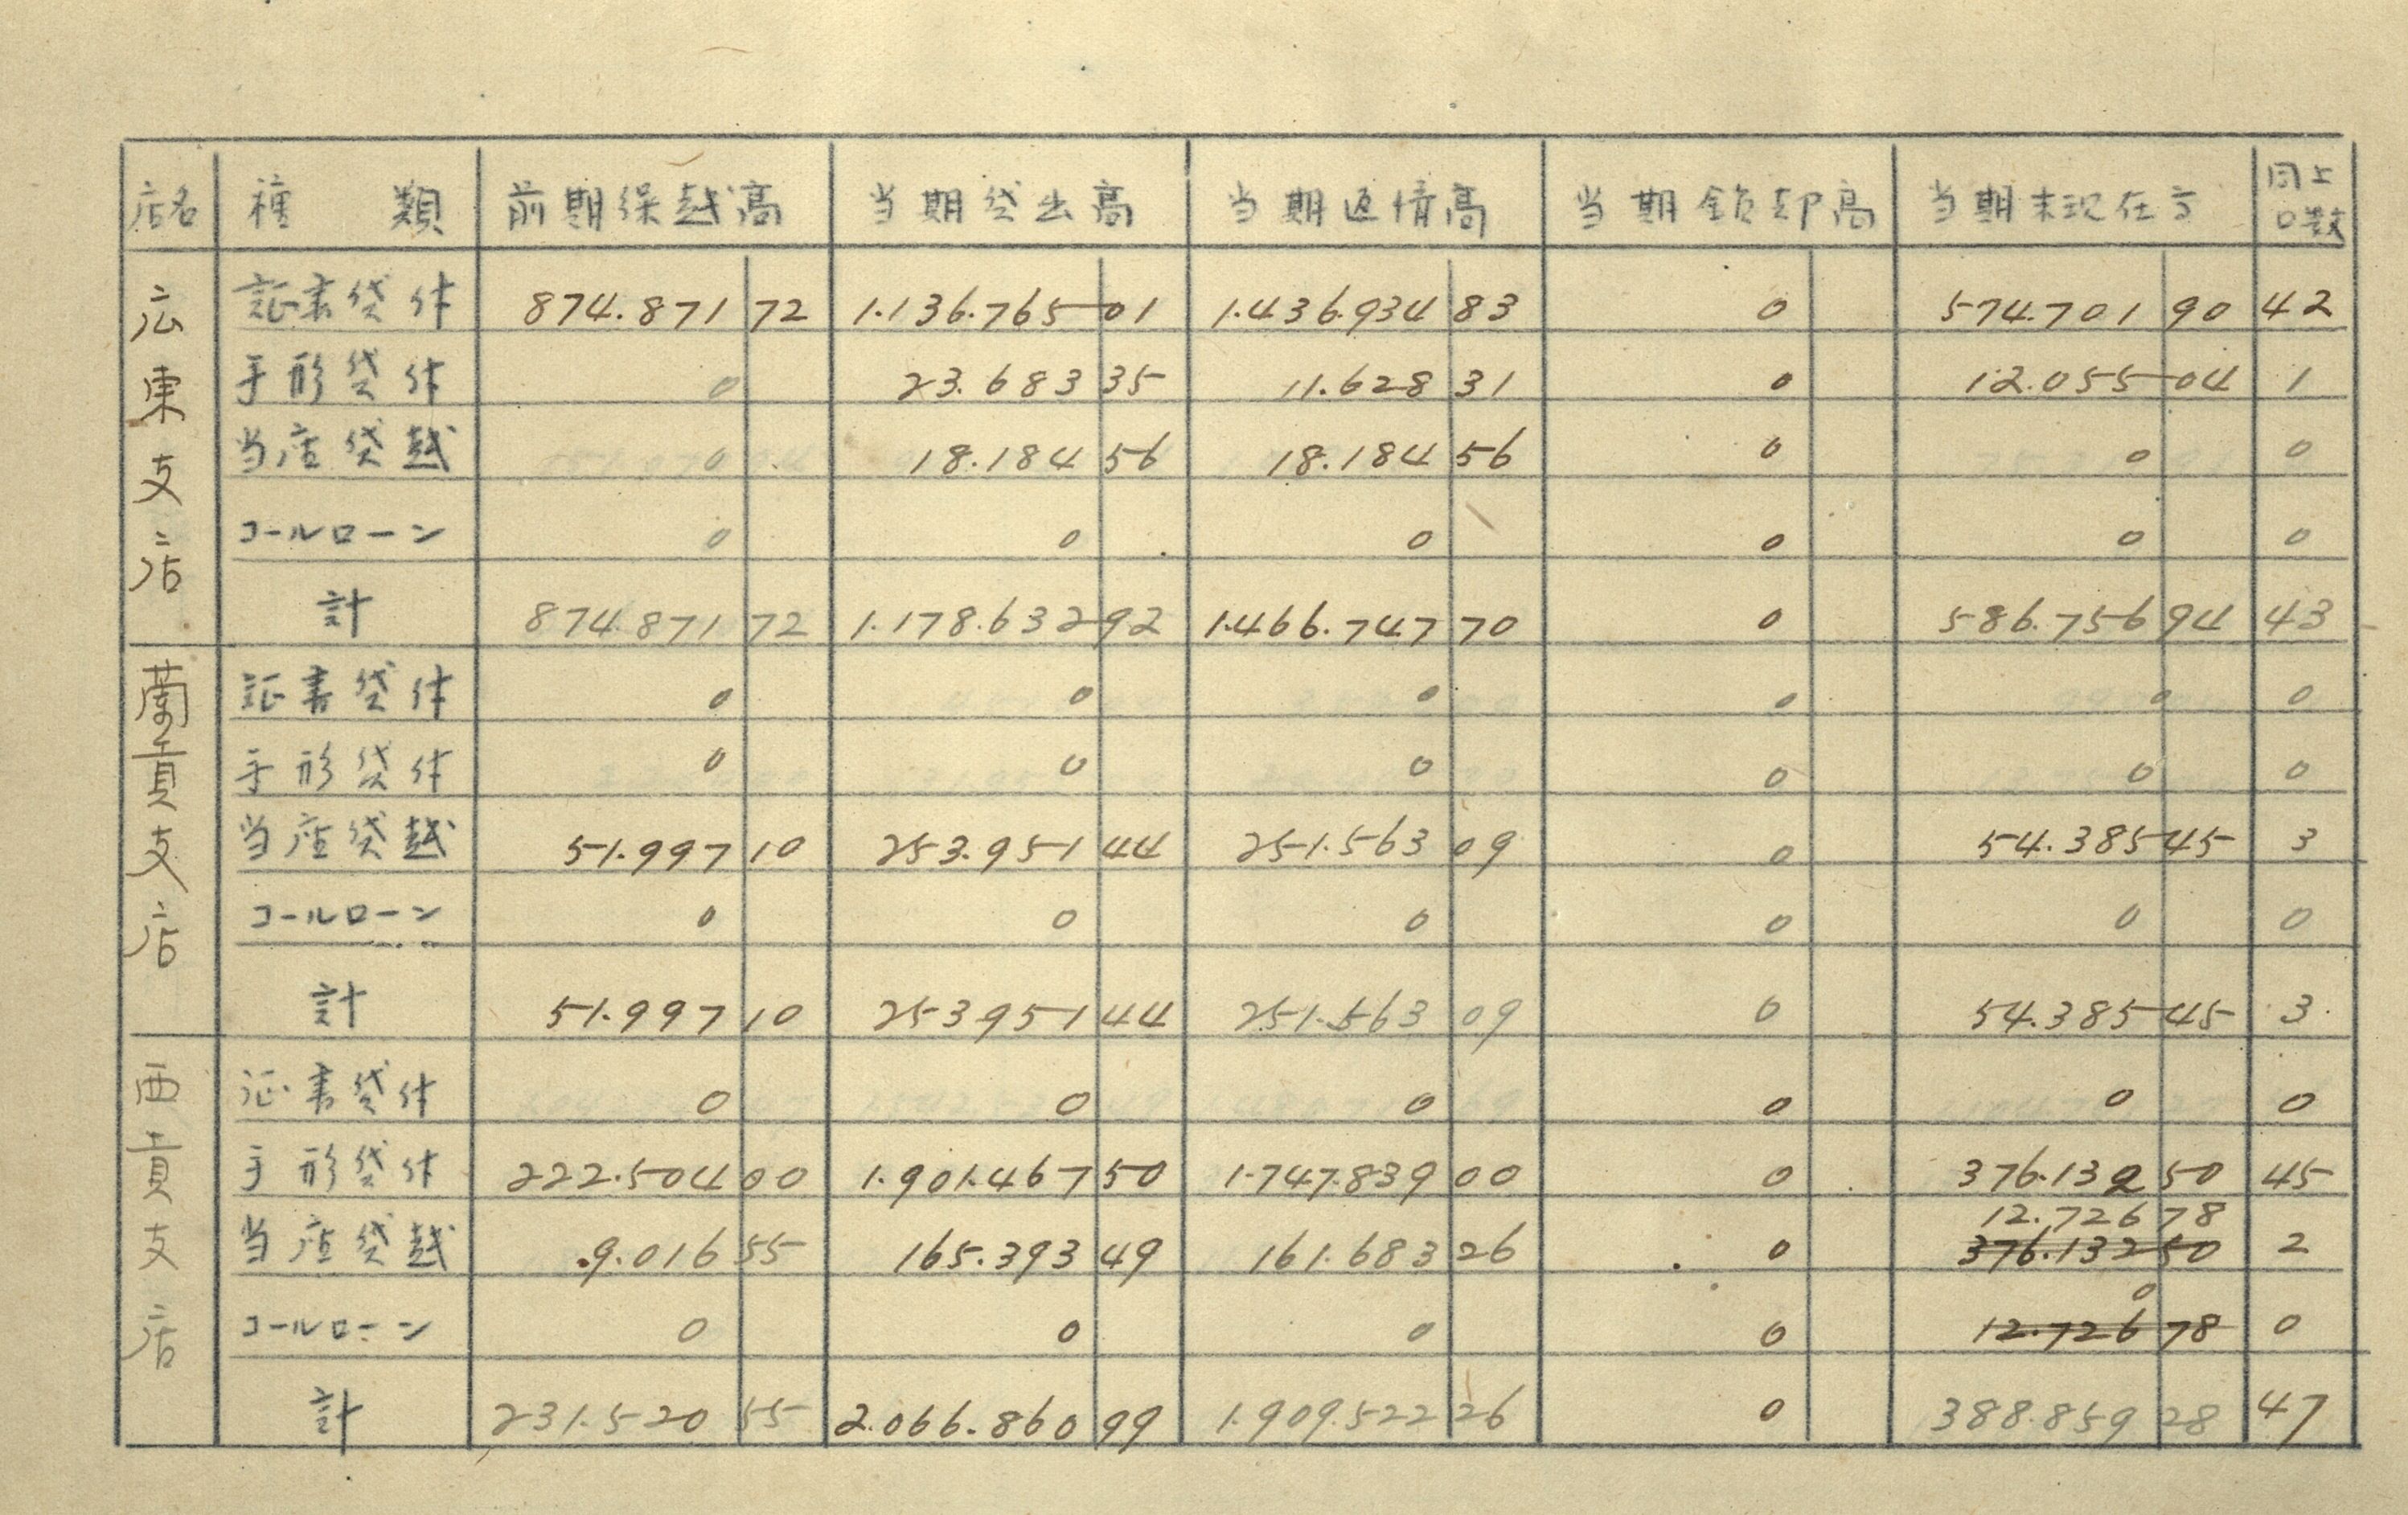 店名 種類 前期繰越高 当期貸出高 当期返済高 当期銷却高 当期末現在高 同上口数
広東支店
証書貸付 874.871 72 1.136.765 01 1.436.934 83 0 574.701 90 42
手形貸付 0 23.683 35 11.628 31 0 12.055 04 1
当座貸越 0 18.184 56 18.184 56 0 0 0
コールローン 0 0 0 0 0 0
計 874.871 72 1.178.632 92 1.466.747 70 0 586.756 94 43
蘭貢支店
証書貸付 0 0 0 0 0 0
手形貸付 0 0 0 0 0 0
当座貸越 51.997 10 253.951 44 251.563 09 0 54.385 45 3
コールローン 0 0 0 0 0 0
計 51.997 10 253951 44 251.563 09 0 54.385 45 3
西貢支店
証書貸付 0 0 0 0 0 0
手形貸付 222.504 00 1.901.467 50 1.747.839 00 0 376.132 50 45
12.726 78
当座貸越 9.016 55 165.393 49 161.683 26 0 376.132 50 2
0
コールローン 0 0 0 0 12.726 78 0
計 231.520 55 2.066.860 99 1.909.522 26 0 388.859 28 47